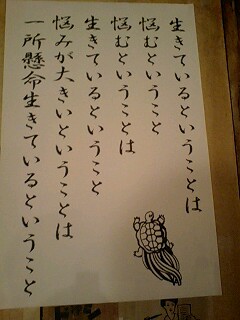 生きているということは
悩むということ
悩むということは
生きているということ
悩みが大きいということは
一所懸命生きているということ